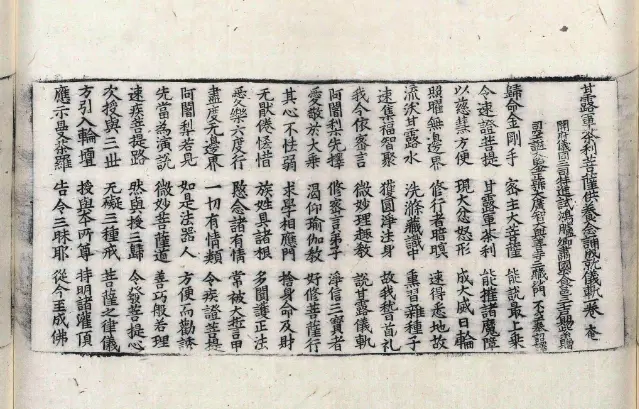 甘露軍茶利菩薩供養念誦成就儀軌一卷 奄
開府儀同三司特進試鴻臚卿肅國公食邑三千戶賜紫贈
司空諡大鑒正號大廣智大興善寺三藏沙門 不空奉 詔譯
歸命金剛手 密主大菩薩 能說最上乘
令速證菩提 甘露軍荼利 能摧諸魔障
以慈慧方便 現大忿怒形 成大威日輪
照曜無邊界 修行者暗暝 速得悉地故
流沃甘露水 洗滌藏識中 熏習雜種子
速集福智聚 獲圓淨法身 故我稽首禮
我今依密言 微妙理趣教 說甘露儀軌
阿闍梨先擇 修密言弟子 淨信三寶者
愛敬於大乘 渴仰瑜伽教 好修菩薩行
其心不怯弱 求學相應門 捨身命及財
无猒倦悋惜 族姓具諸根 多聞護正法
愛樂六度行 愍念諸有情 常被大誓甲
盡度无邊界 一切有情類 令疾證菩提
阿闍梨若見 如是法器人 方便而勸誘
先當為演說 微妙菩薩道 善巧般若理
速疾菩提路 然與授三歸 令發菩提心
次授與三世 无礙三種戒 菩薩之律儀
方引入輪壇 授與本所尊 持明諸灌頂
應示曼荼羅 告令三昧耶 從今至成佛